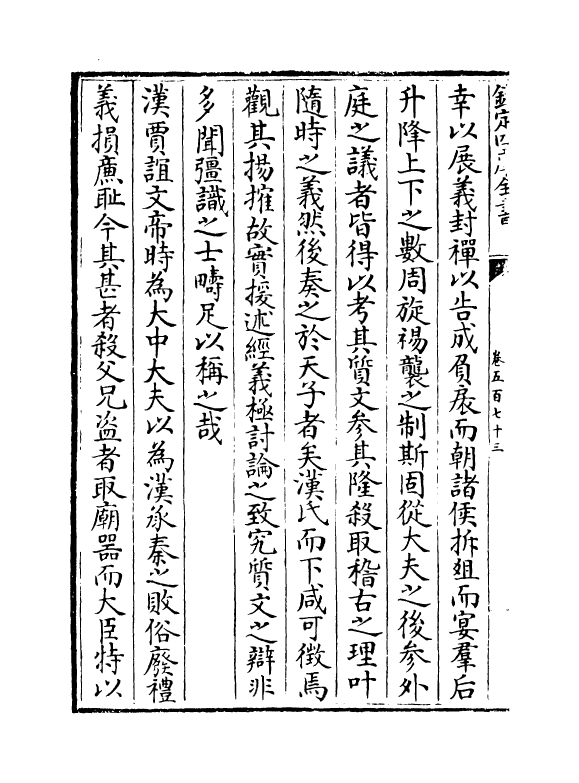 欽定四庫全書
卷五百七十三
幸以展義封禪以告成負扆而朝諸侯折俎而宴羣后
升降上下之數周旋裼襲之制斯固從大夫之後參外
庭之議者皆得以考其質文參其隆殺取稽古之理叶
隨時之義然後奏之於天子者矣漢氏而下咸可徵焉
觀其揚搉故實援述經義極討論之致究質文之辯非
多聞彊識之士疇足以稱之哉
漢賈誼文帝時為大中大夫以為漢承秦之敗俗廢禮
義損亷耻今其甚者殺父兄盗者取廟器而大臣特以